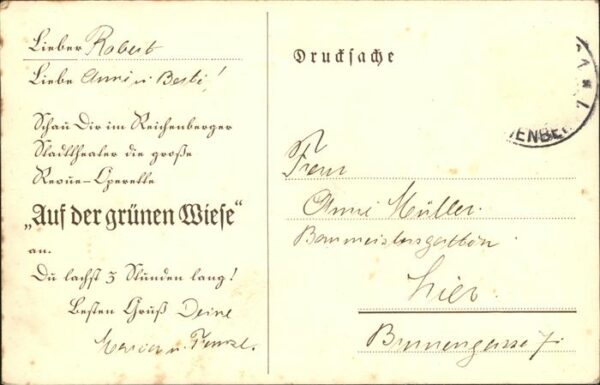 Lieber Robert
Liebe Anni u. Berti!
Schau Dir im Reichenberger
Stadttheater die große
Revue-Operette
„Auf der grünen Wiese“
an.
Du lachst 3 Stunden lang!
Besten Gruß Deine
u.
Drucksache
ENBE
Frau
Anni Müller.
Baumeistersgattin
hier.
Brunnengasse 7